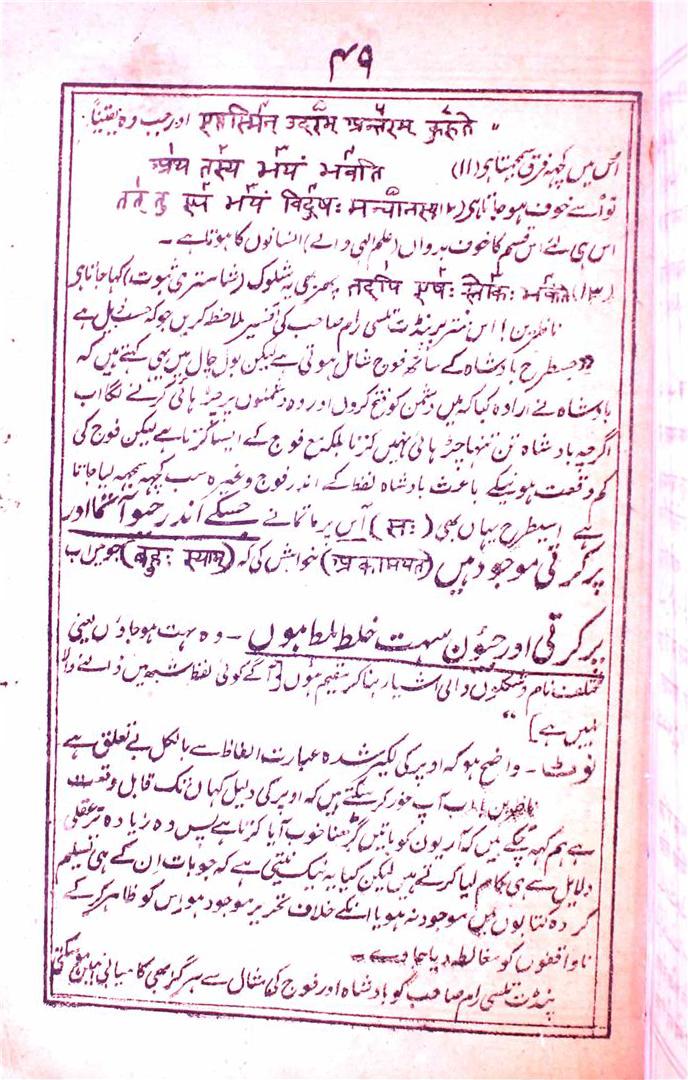 ۴۹
" एतस्मिन् उदरम् अन्तरम् कुरुते اور جب وہ یقیناً
اُس میں کچہہ فرق سمجہتا ہی (۱۱) अथ तस्य भयं भवति
تو اُسے خوف ہو جاتا ہی (۱۲) तत् तु एव भयं विदुषः मन्वानस्य
اس ہی لئے اس قسم کا خوف بدواں (علم الہی والے) انسانوں کا ہوتا ہے ۔
(۱۳) तदपि एषः श्लोकः भवति پھر بھی یہ شلوک (شاستری ثبوت) کہا جاتا ہی
ناظرین! اس منتر پر پنڈت تلسی رام صاحب کی تفسیر ملاحظہ کریں جو کہ حسب ذیل ہے
"جسطرح بادشاہ کے ساتھ فوج شامل ہوتی ہے لیکن بول چال میں یہی کہتے ہیں کہ
بادشاہ نے ارادہ کیا کہ میں دشمن کو فتح کروں اور وہ دشمنوں پر چڑہائی کرنے لگا اب
اگرچہ بادشاہ تن تنہا چڑہائی نہیں کرتا بلکہ مع فوج کے ایسا کرتا ہے لیکن فوج کی
کم وقعت ہونیکے باعث بادشاہ لفظ کے اندر فوج وغیرہ سب کچہہ سمجہہ لیا جاتا
ہے اسیطرح یہاں بھی (सः) اُس پرماتمانے جسکے اندر جیو آتما اور
پرکرتی موجود ہیں (अकामयत) خواہش کی کہ (बहुः स्याम्) جو میں اب
پرکرتی اور جیوں سہت خلط ملط ہوں ۔ وہ بہت ہو جاؤں یعنی
مختلف نام و شکلوں والی اشیار بنا کر متقیم ہوں [آگے کوئی لفظ اشبہ میں ڈالنے والا
نہیں ہے] "
نوٹ ۔ واضح ہو کہ اوپر کی لکیر شدہ عبارت الفاظ سے بالکل بے تعلق ہے
ناظرین اب آپ غور کر سکتے ہیں کہ اوپر کی دلیل کہاں تک قابل وقعت
ہے ہم کہہ چکے ہیں کہ آریوں کو باتیں گڑھنا خوب آیا کرتا ہے پس وہ زیادہ تر عقلی
دلایل سے ہی کام لیا کرتے ہیں لیکن کیا یہ نیک نیتی ہے کہ جو بات اِن کے ہی تسلیم
کردہ کتابوں میں موجود نہ ہو یا انکے خلاف تحریر موجود ہو اِس کو ظاہر کر کے
ناواقفوں کو مغالطہ دیا جاوے ۔
پنڈت تلسی رام صاحب کو بادشاہ اور فوج کی مثال سے ہرگز بھی کامیابی نہیں ہو سکتی